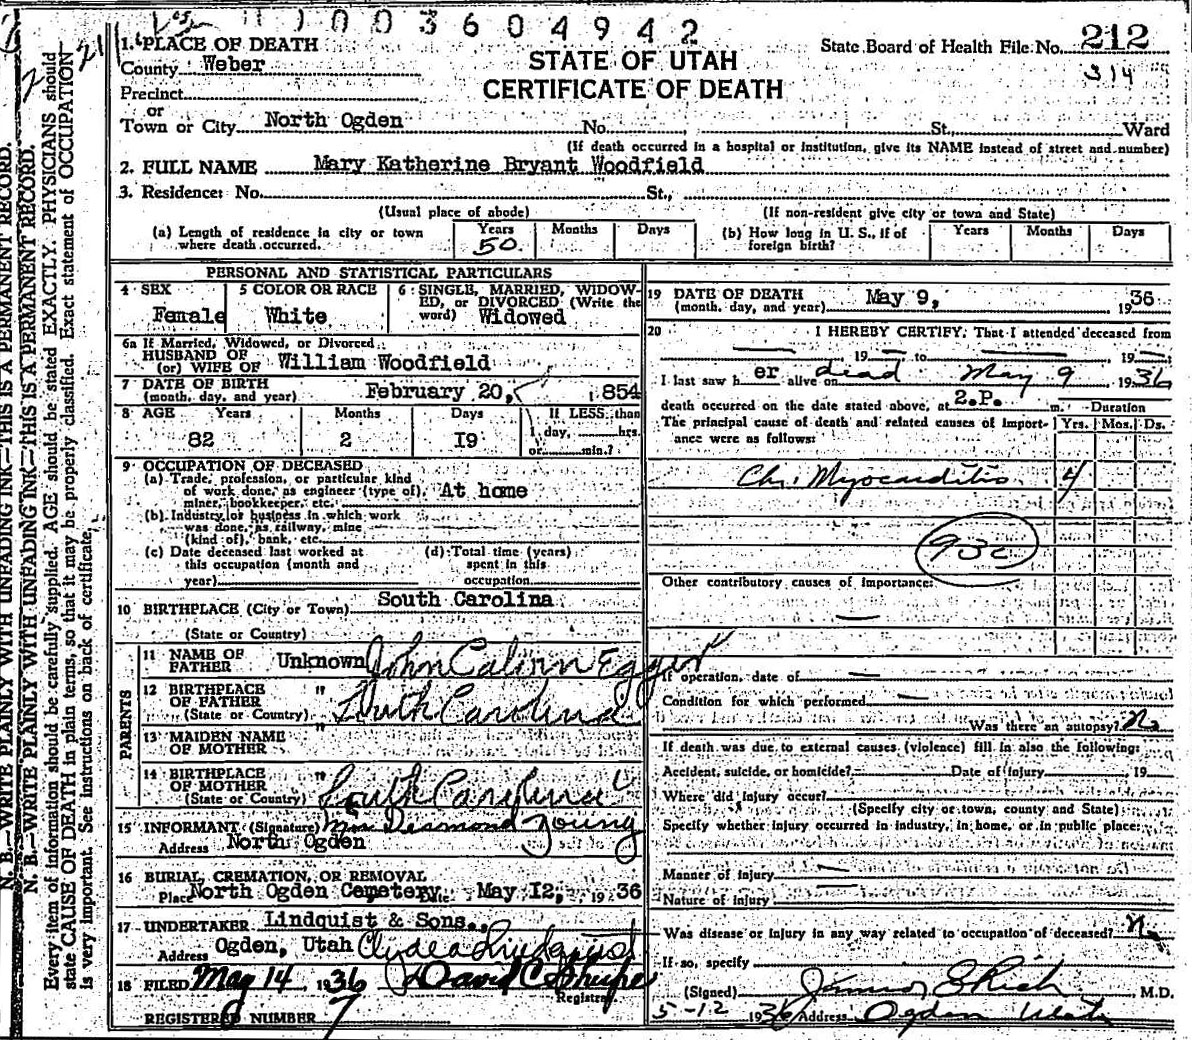 11003604942
1. PLACE OF DEATH
County Weber
STATE OF UTAH
CERTIFICATE OF DEATH
State Board of Health File No. 212
314
Precinct
or
Town or City North Ogden No. St., Ward
(If death occurred in a hospital or institution, give its NAME instead of street and number)
2. FULL NAME Mary Katherine Bryant Woodfield
3. Residence: No. St.,
(Usual place of abode) (If non-resident give city or town and State)
(a) Length of residence in city or town where death occurred. Years 50 Months Days
(b) How long in U. S., if of foreign birth? Years Months Days
PERSONAL AND STATISTICAL PARTICULARS
4 SEX Female
5 COLOR OR RACE White
6 SINGLE, MARRIED, WIDOWED, or DIVORCED (Write the word) Widowed
6a If Married, Widowed, or Divorced
HUSBAND OF
(or) WIFE OF William Woodfield
7 DATE OF BIRTH
(month, day, and year) February 20, 1854
8 AGE Years 82 Months 2 Days I9 If LESS than 1 day, hrs. or min.?
9 OCCUPATION OF DECEASED
(a) Trade, profession, or particular kind
of work done, as engineer (type of), At home
miner, bookkeeper, etc.
(b) Industry or business in which work
was done, as railway, mine
(kind of), bank, etc.
(c) Date deceased last worked at
this occupation (month and
year)
(d) Total time (years)
spent in this
occupation
10 BIRTHPLACE (City or Town) South Carolina
(State or Country)
PARENTS
11 NAME OF FATHER Unknown John Calvin Egger
12 BIRTHPLACE OF FATHER " South Carolina
(State or Country)
13 MAIDEN NAME OF MOTHER "
14 BIRTHPLACE OF MOTHER " South Carolina
(State or Country)
15 INFORMANT (Signature) Mrs Desmond Young
Address North Ogden
16 BURIAL, CREMATION, OR REMOVAL
Place North Ogden Cemetery Date May I2, 1936
17 UNDERTAKER Lindquist & Sons.,
Address Ogden, Utah Clyde a Lindquist
18 FILED May 14 1936 David C Shupe
Registrar
REGISTERED NUMBER 7
19 DATE OF DEATH
(month, day, and year) May 9, 1936
20 I HEREBY CERTIFY, That I attended deceased from
— 19 — to — 19 —
I last saw her alive on dead May 9 1936
death occurred on the date stated above, at 2.P. m. Duration
The principal cause of death and related causes of importance were as follows: Yrs. Mos. Ds.
Chr. Myocarditis 4
93c
Other contributory causes of importance:
If operation, date of —
Condition for which performed —
Was there an autopsy? No
If death was due to external causes (violence) fill in also the following:
Accident, suicide, or homicide? Date of injury 19
Where did injury occur?
(Specify city or town, county and State)
Specify whether injury occurred in industry, in home, or in public place:
Manner of injury —
Nature of injury —
Was disease or injury in any way related to occupation of deceased? No
If so, specify —
(Signed) James S Rich, M.D.
5-12 1936 Address Ogden Utah
N. B.—WRITE PLAINLY WITH UNFADING INK—THIS IS A PERMANENT RECORD.
N. B.—WRITE PLAINLY WITH UNFADING INK—THIS IS A PERMANENT RECORD.
Every item of information should be carefully supplied. AGE should be stated EXACTLY. PHYSICIANS should
state CAUSE OF DEATH in plain terms, so that it may be properly classified. Exact statement of OCCUPATION
is very important. See instructions on back of certificate.